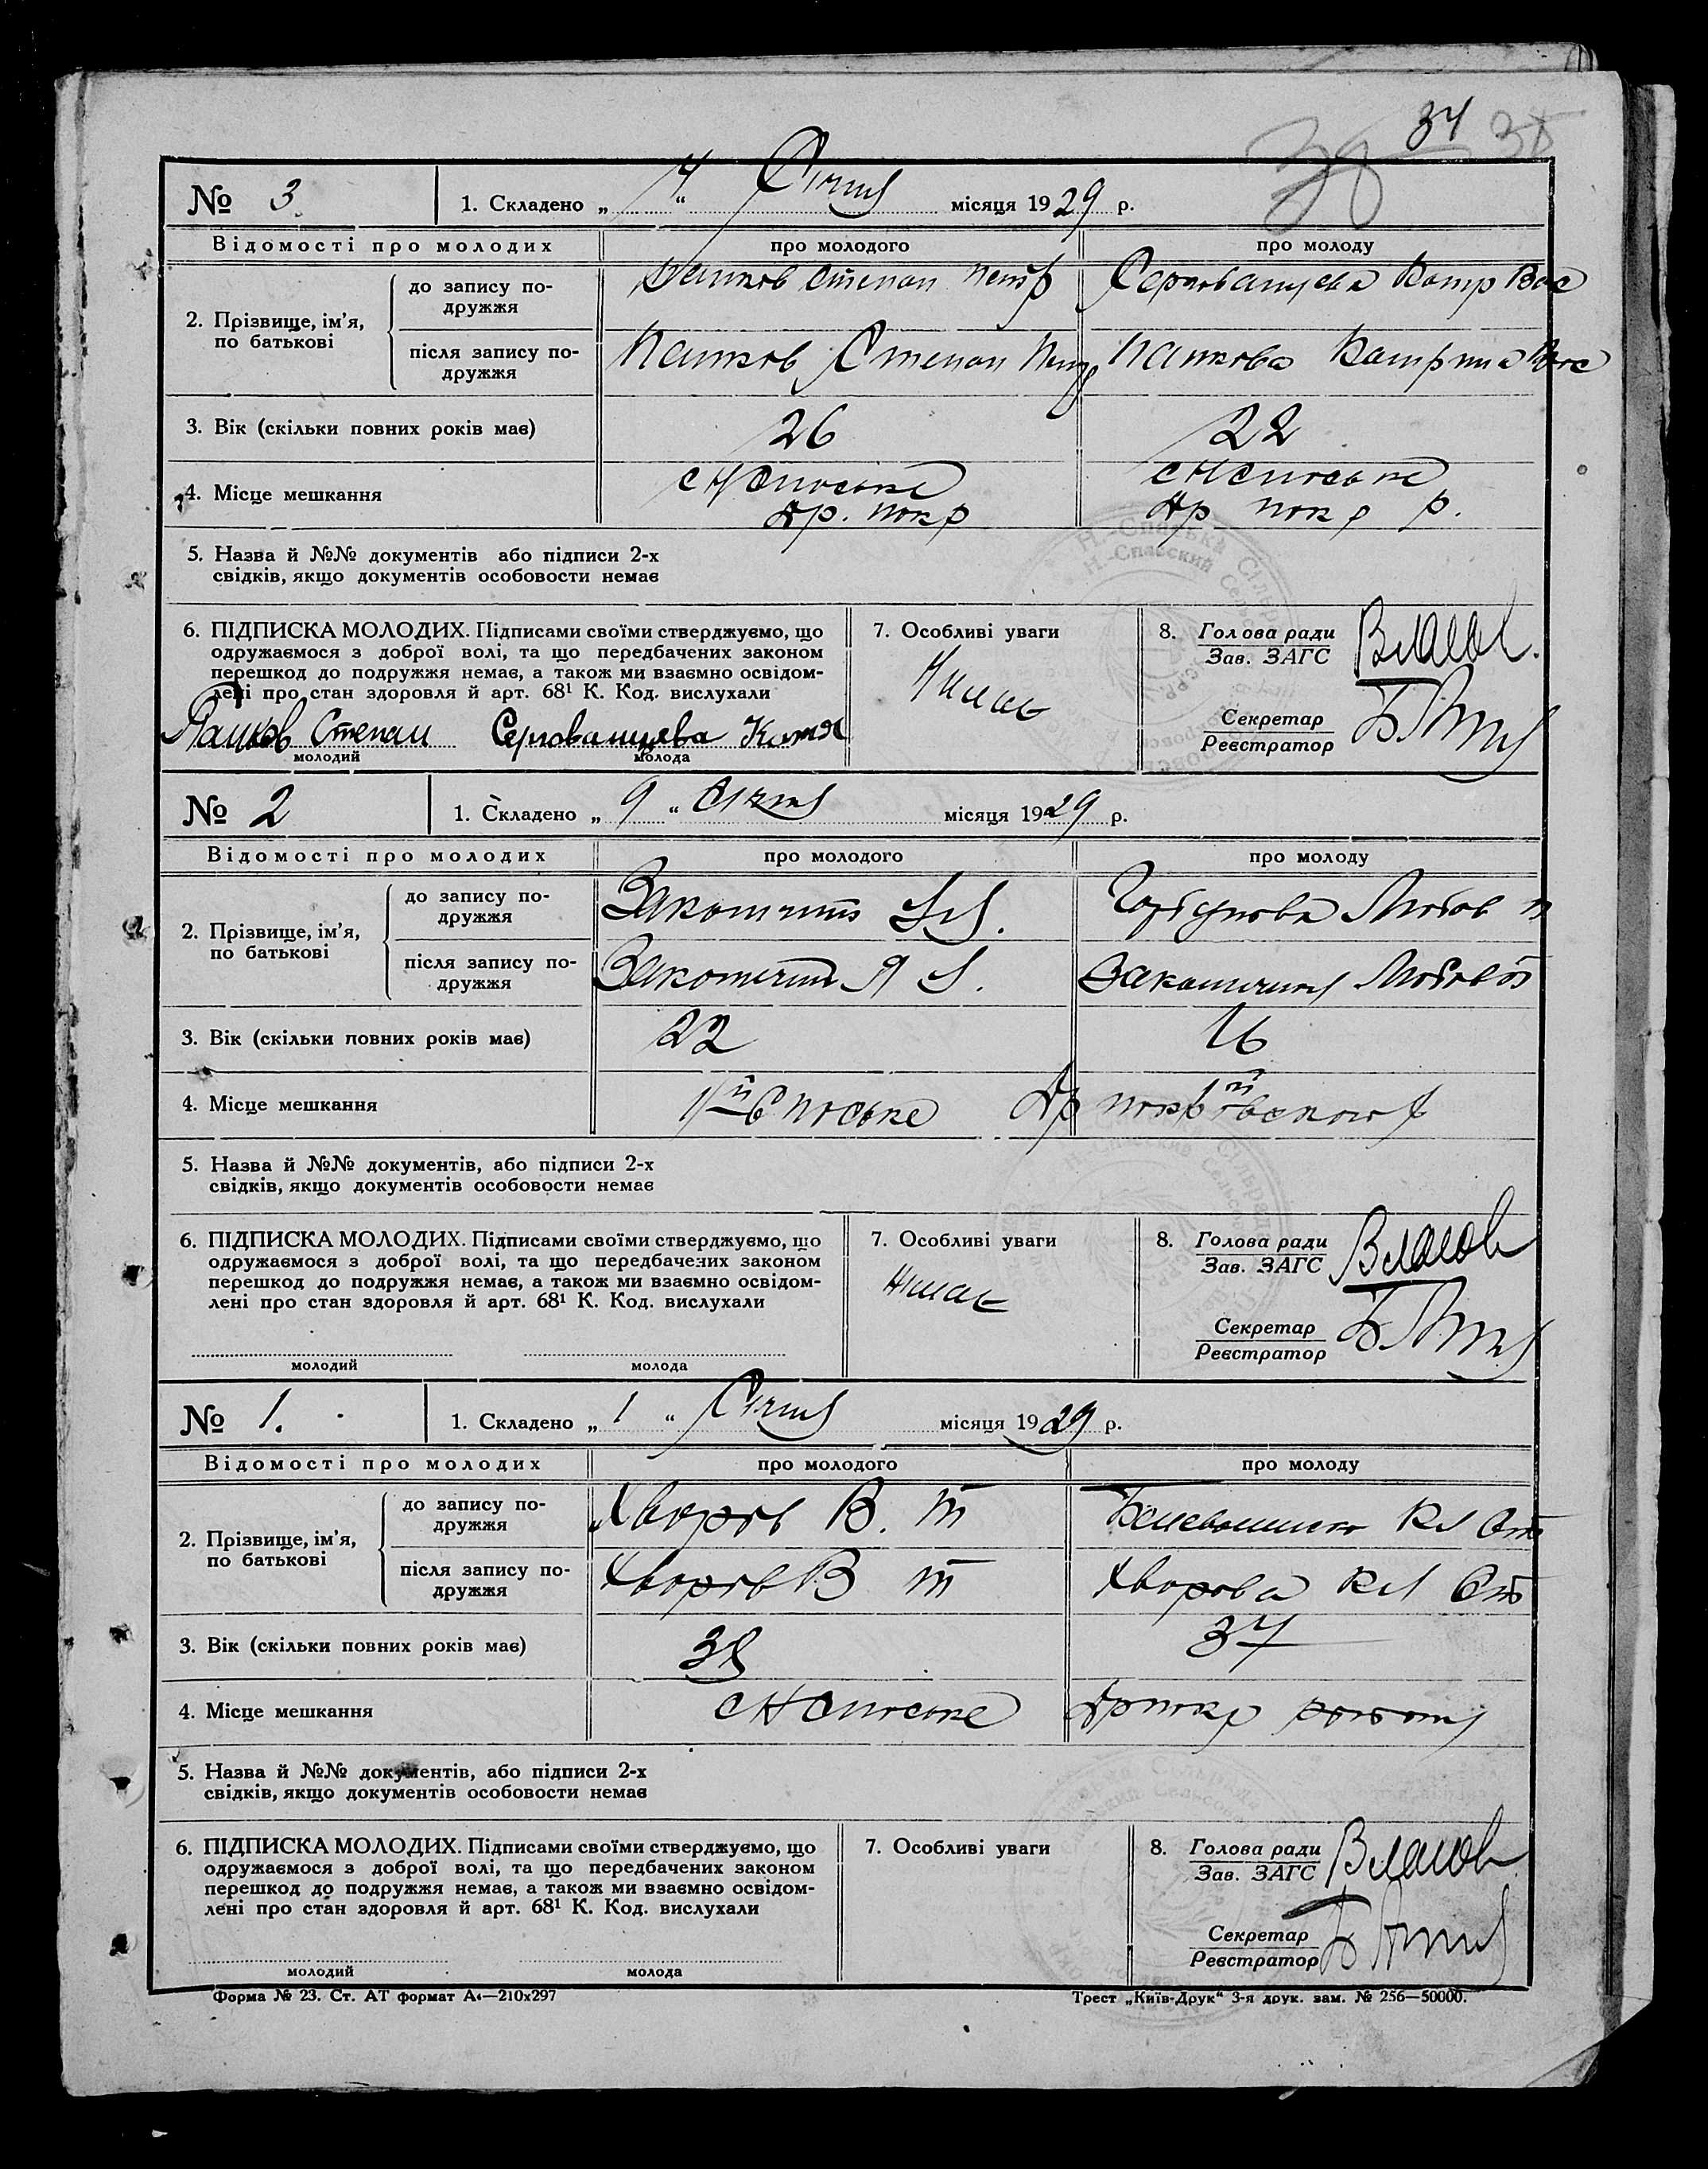 34 35
38
№ 3. 1. Складено „ 4 “ Січня місяця 1929 р.
Відомості про молодих про молодого про молоду
2. Прізвище, ім'я, по батькові
до запису по-
дружжя
Пашков Степан Петр
Катр Вас
після запису по-
дружжя
Пашков Степан Петр
Пашкова Катрина Вас
3. Вік (скільки повних років має) 26 22
4. Місце мешкання
с Н Спаське с Н Спаське
др. покр др покр р.
5. Назва й №№ документів або підписи 2-х
свідків, якщо документів особовости немає
6. ПІДПИСКА МОЛОДИХ. Підписами своїми стверджуємо, що
одружаємося з доброї волі, та що передбачених законом
перешкод до подружжя немає, а також ми взаємно освідом-
лені про стан здоровля й арт. 68¹ К. Код. вислухали
Пашков Степан Катя
молодий молода
7. Особливі уваги
Немає
8. Голова ради
Зав. ЗАГС
Власов
Секретар
Реєстратор
№ 2 1. Складено „ 9 “ Січня місяця 1929 р.
Відомості про молодих про молодого про молоду
2. Прізвище, ім'я, по батькові
до запису по-
дружжя
Горбунова Любов п
після запису по-
дружжя
Любов
3. Вік (скільки повних років має) 22 16
4. Місце мешкання
Спаське др покровского
5. Назва й №№ документів, або підписи 2-х
свідків, якщо документів особовости немає
6. ПІДПИСКА МОЛОДИХ. Підписами своїми стверджуємо, що
одружаємося з доброї волі, та що передбачених законом
перешкод до подружжя немає, а також ми взаємно освідом-
лені про стан здоровля й арт. 68¹ К. Код. вислухали
молодий молода
7. Особливі уваги
Немає
8. Голова ради
Зав. ЗАГС
Власов
Секретар
Реєстратор
№ 1. 1. Складено „ 1 “ Січня місяця 1929 р.
Відомості про молодих про молодого про молоду
2. Прізвище, ім'я, по батькові
до запису по-
дружжя
Хворов В. Т
Кл
після запису по-
дружжя
Хворов В Т
Хворова Кл
3. Вік (скільки повних років має) 38 37
4. Місце мешкання
с Н Спаське др покр
5. Назва й №№ документів, або підписи 2-х
свідків, якщо документів особовости немає
6. ПІДПИСКА МОЛОДИХ. Підписами своїми стверджуємо, що
одружаємося з доброї волі, та що передбачених законом
перешкод до подружжя немає, а також ми взаємно освідом-
лені про стан здоровля й арт. 68¹ К. Код. вислухали
молодий молода
7. Особливі уваги
8. Голова ради
Зав. ЗАГС
Власов
Секретар
Реєстратор
Форма № 23. Ст. АТ формат А4—210х297
Трест „Київ-Друк“ 3-я друк. зам. № 256—50000.